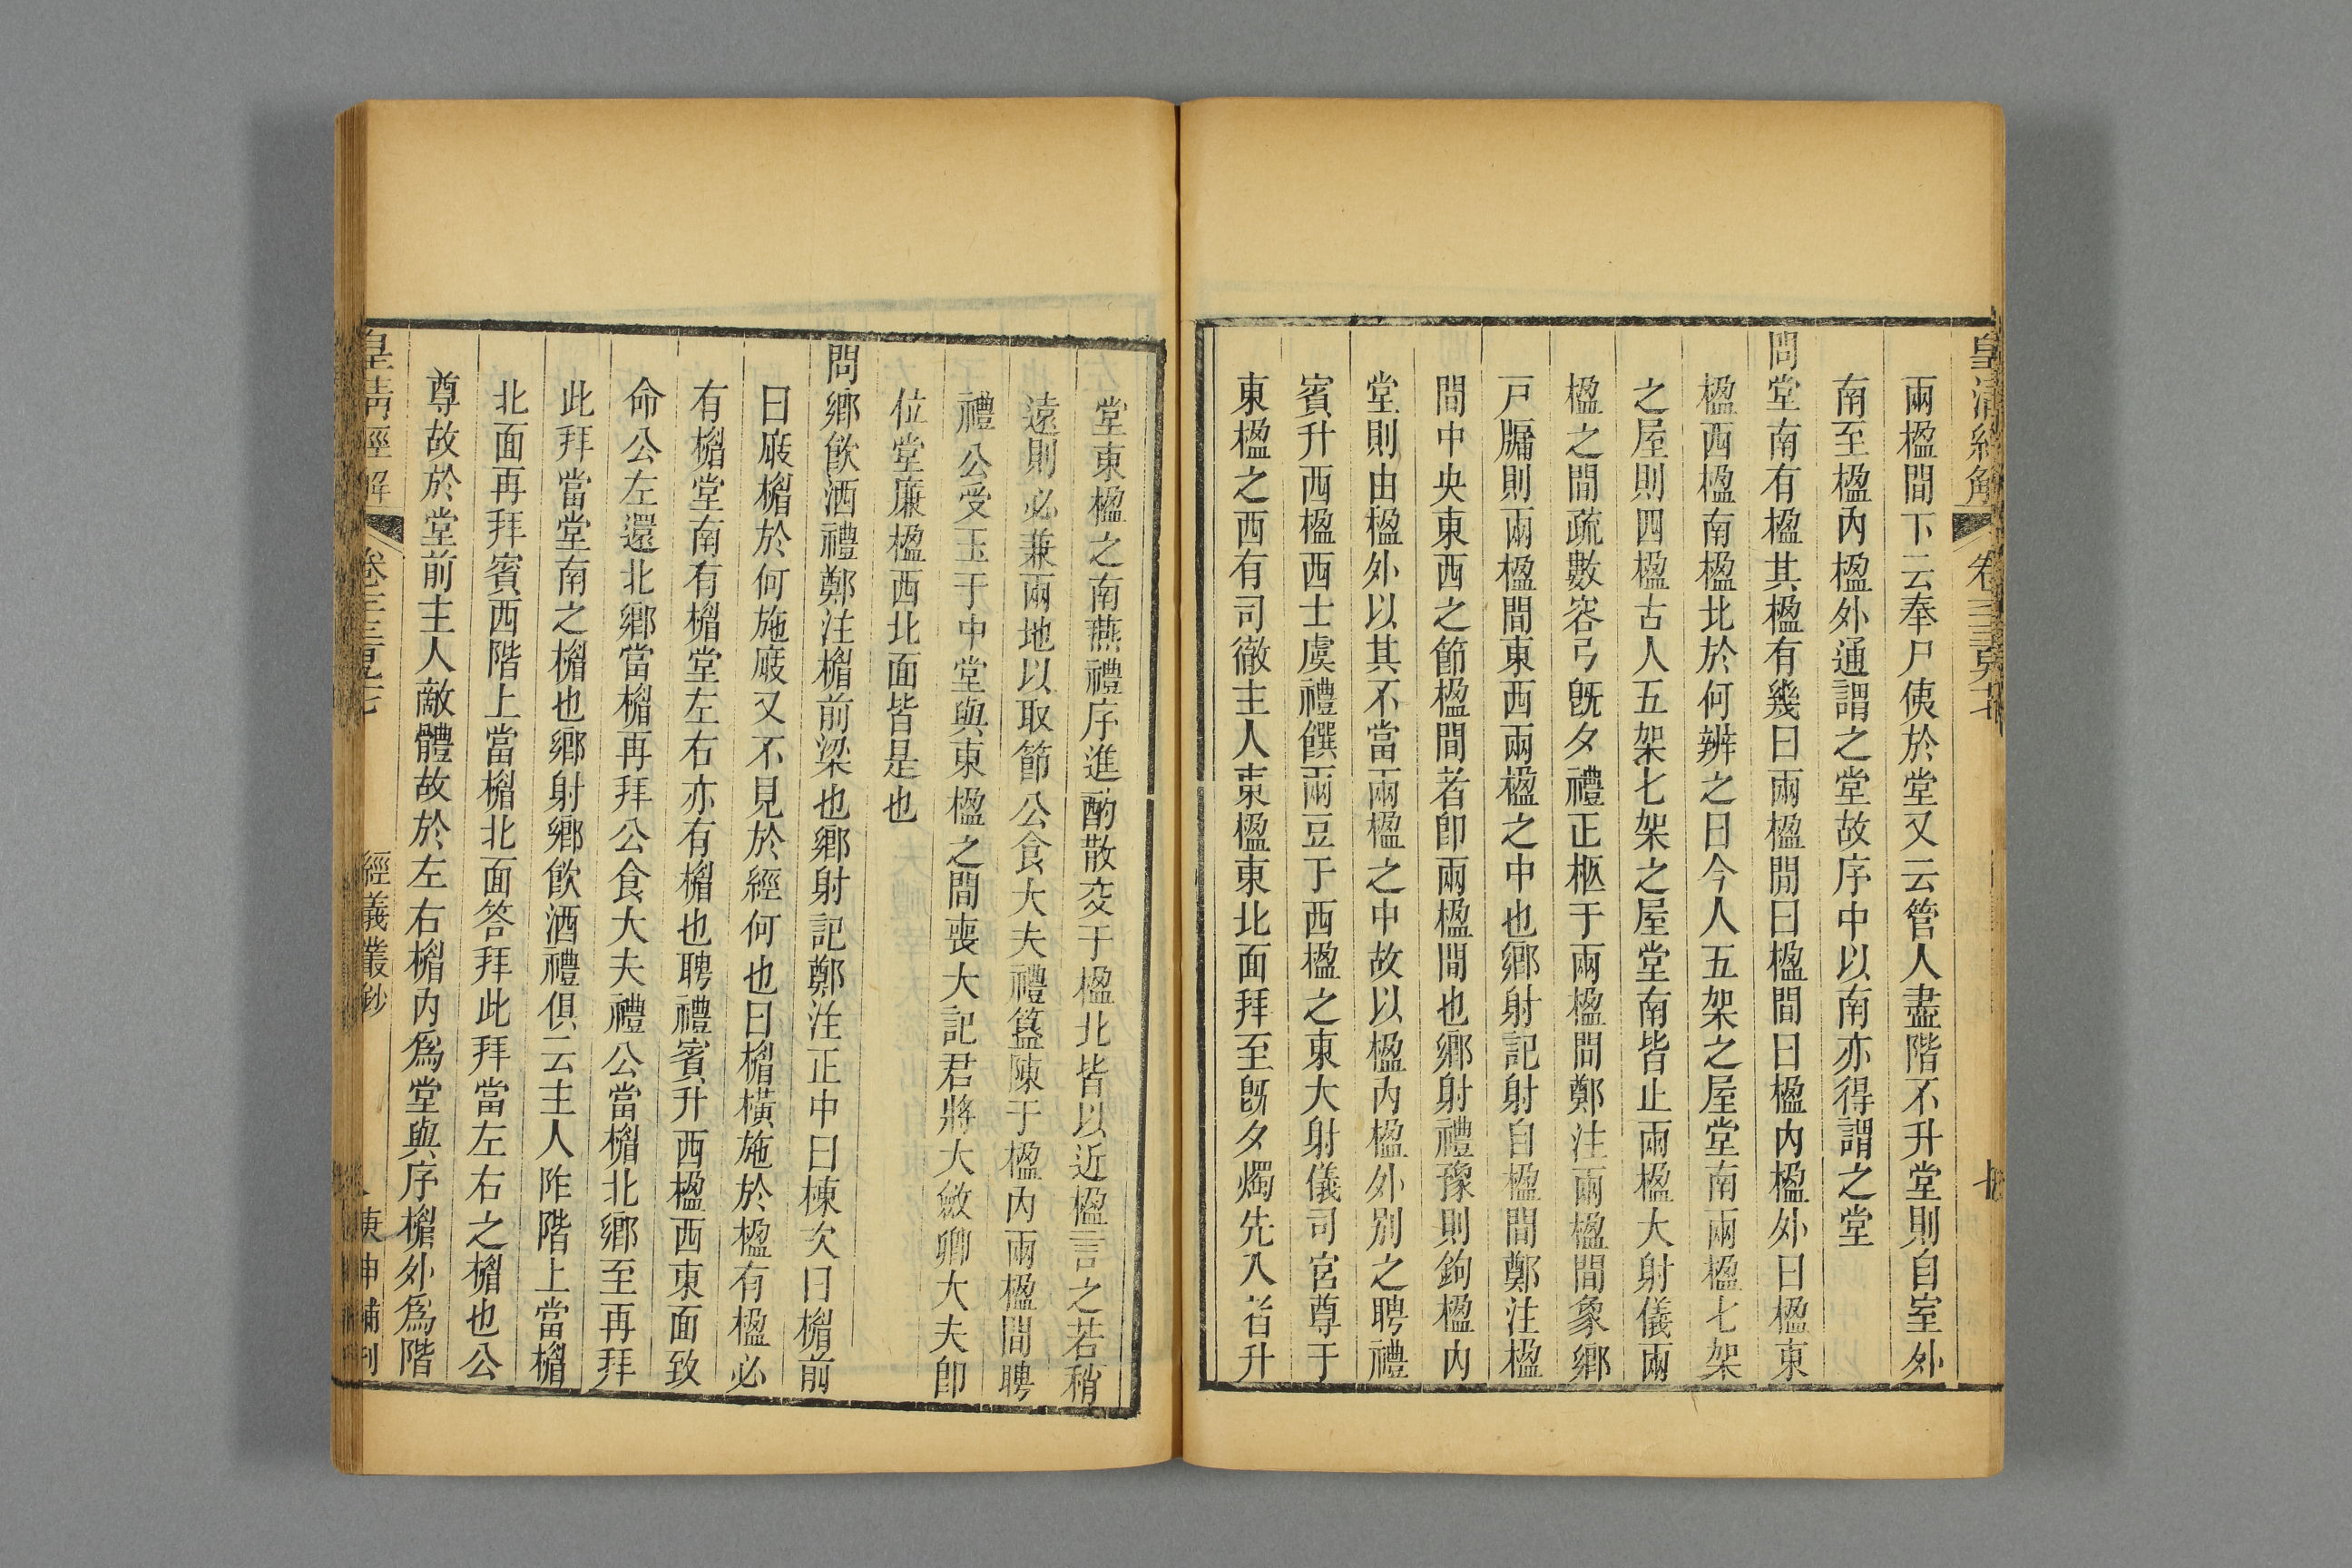 皇清經解
卷三百
兩楹間下云奉尸侇於堂又云管人盡階不升堂則自室外
南至楹內楹外通謂之堂故序中以南亦得謂之堂
問堂南有楹其楹有幾曰兩楹閒曰楹間曰楹內楹外曰楹東
楹西楹南楹北於何辨之曰今人五架之屋堂南兩楹七架
之屋則四楹古人五架七架之屋堂南皆止兩楹大射儀兩
楹之間疏數容弓旣夕禮正柩于兩楹間鄭注兩楹間象鄉
戸牖則兩楹間東西兩楹之中也鄉射記射自楹間鄭注楹
間中央東西之節楹間者卽兩楹間也鄉射禮豫則鉤楹內
堂則由楹外以其不當兩楹之中故以楹內楹外別之聘禮
賓升西楹西士虞禮饌兩豆于西楹之東大射儀司宮尊于
東楹之西有司徹主人東楹東北面拜至旣夕燭先入者升
堂東楹之南燕禮序進酌散交于楹北皆以近楹言之若稍
遠則必兼兩地以取節公食大夫禮簠陳于楹內兩楹間聘
禮公受玉于中堂與東楹之間喪大記君將大斂卿大夫卽
位堂廉楹西北面皆是也
問鄉飮酒禮鄭注楣前梁也鄉射記鄭注正中曰棟次曰楣前
曰庪楣於何施庪又不見於經何也曰楣橫施於楹有楹必
有楣堂南有楣堂左右亦有楣也聘禮賓升西楹西東面致
命公左還北鄉當楣再拜公食大夫禮公當楣北鄉至再拜
此拜當堂南之楣也鄉射鄉飮酒禮俱云主人阼階上當楣
北面再拜賓西階上當楣北面答拜此拜當左右之楣也公
尊故於堂前主人敵體故於左右楣內爲堂與序楣外爲階
皇清經解
卷三百
經義叢鈔
庚申補刊